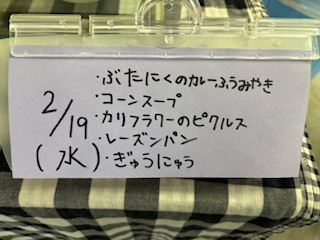 2/19
(水)
・ぶたにくのカレーふうみやき
・コーンスープ
・カリフラワーのピクルス
・レーズンパン
・ぎゅうにゅう